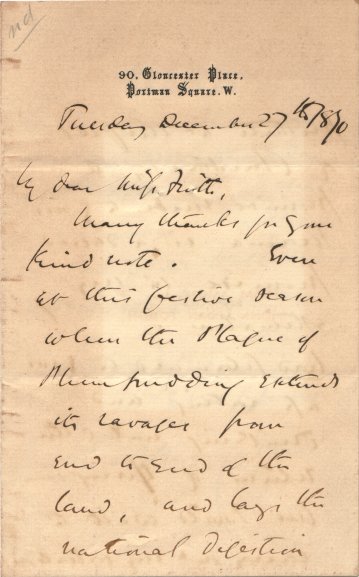 nd
90, Gloucester Place,
Portman Square. W.
Tuesday December 27th 1870
My dear Miss Frith,
Many thanks for your
kind note. Even
at this festive season
when the Plague of
Plum pudding extends
its ravages from
end to end of the
land, and lays the
national Digestion